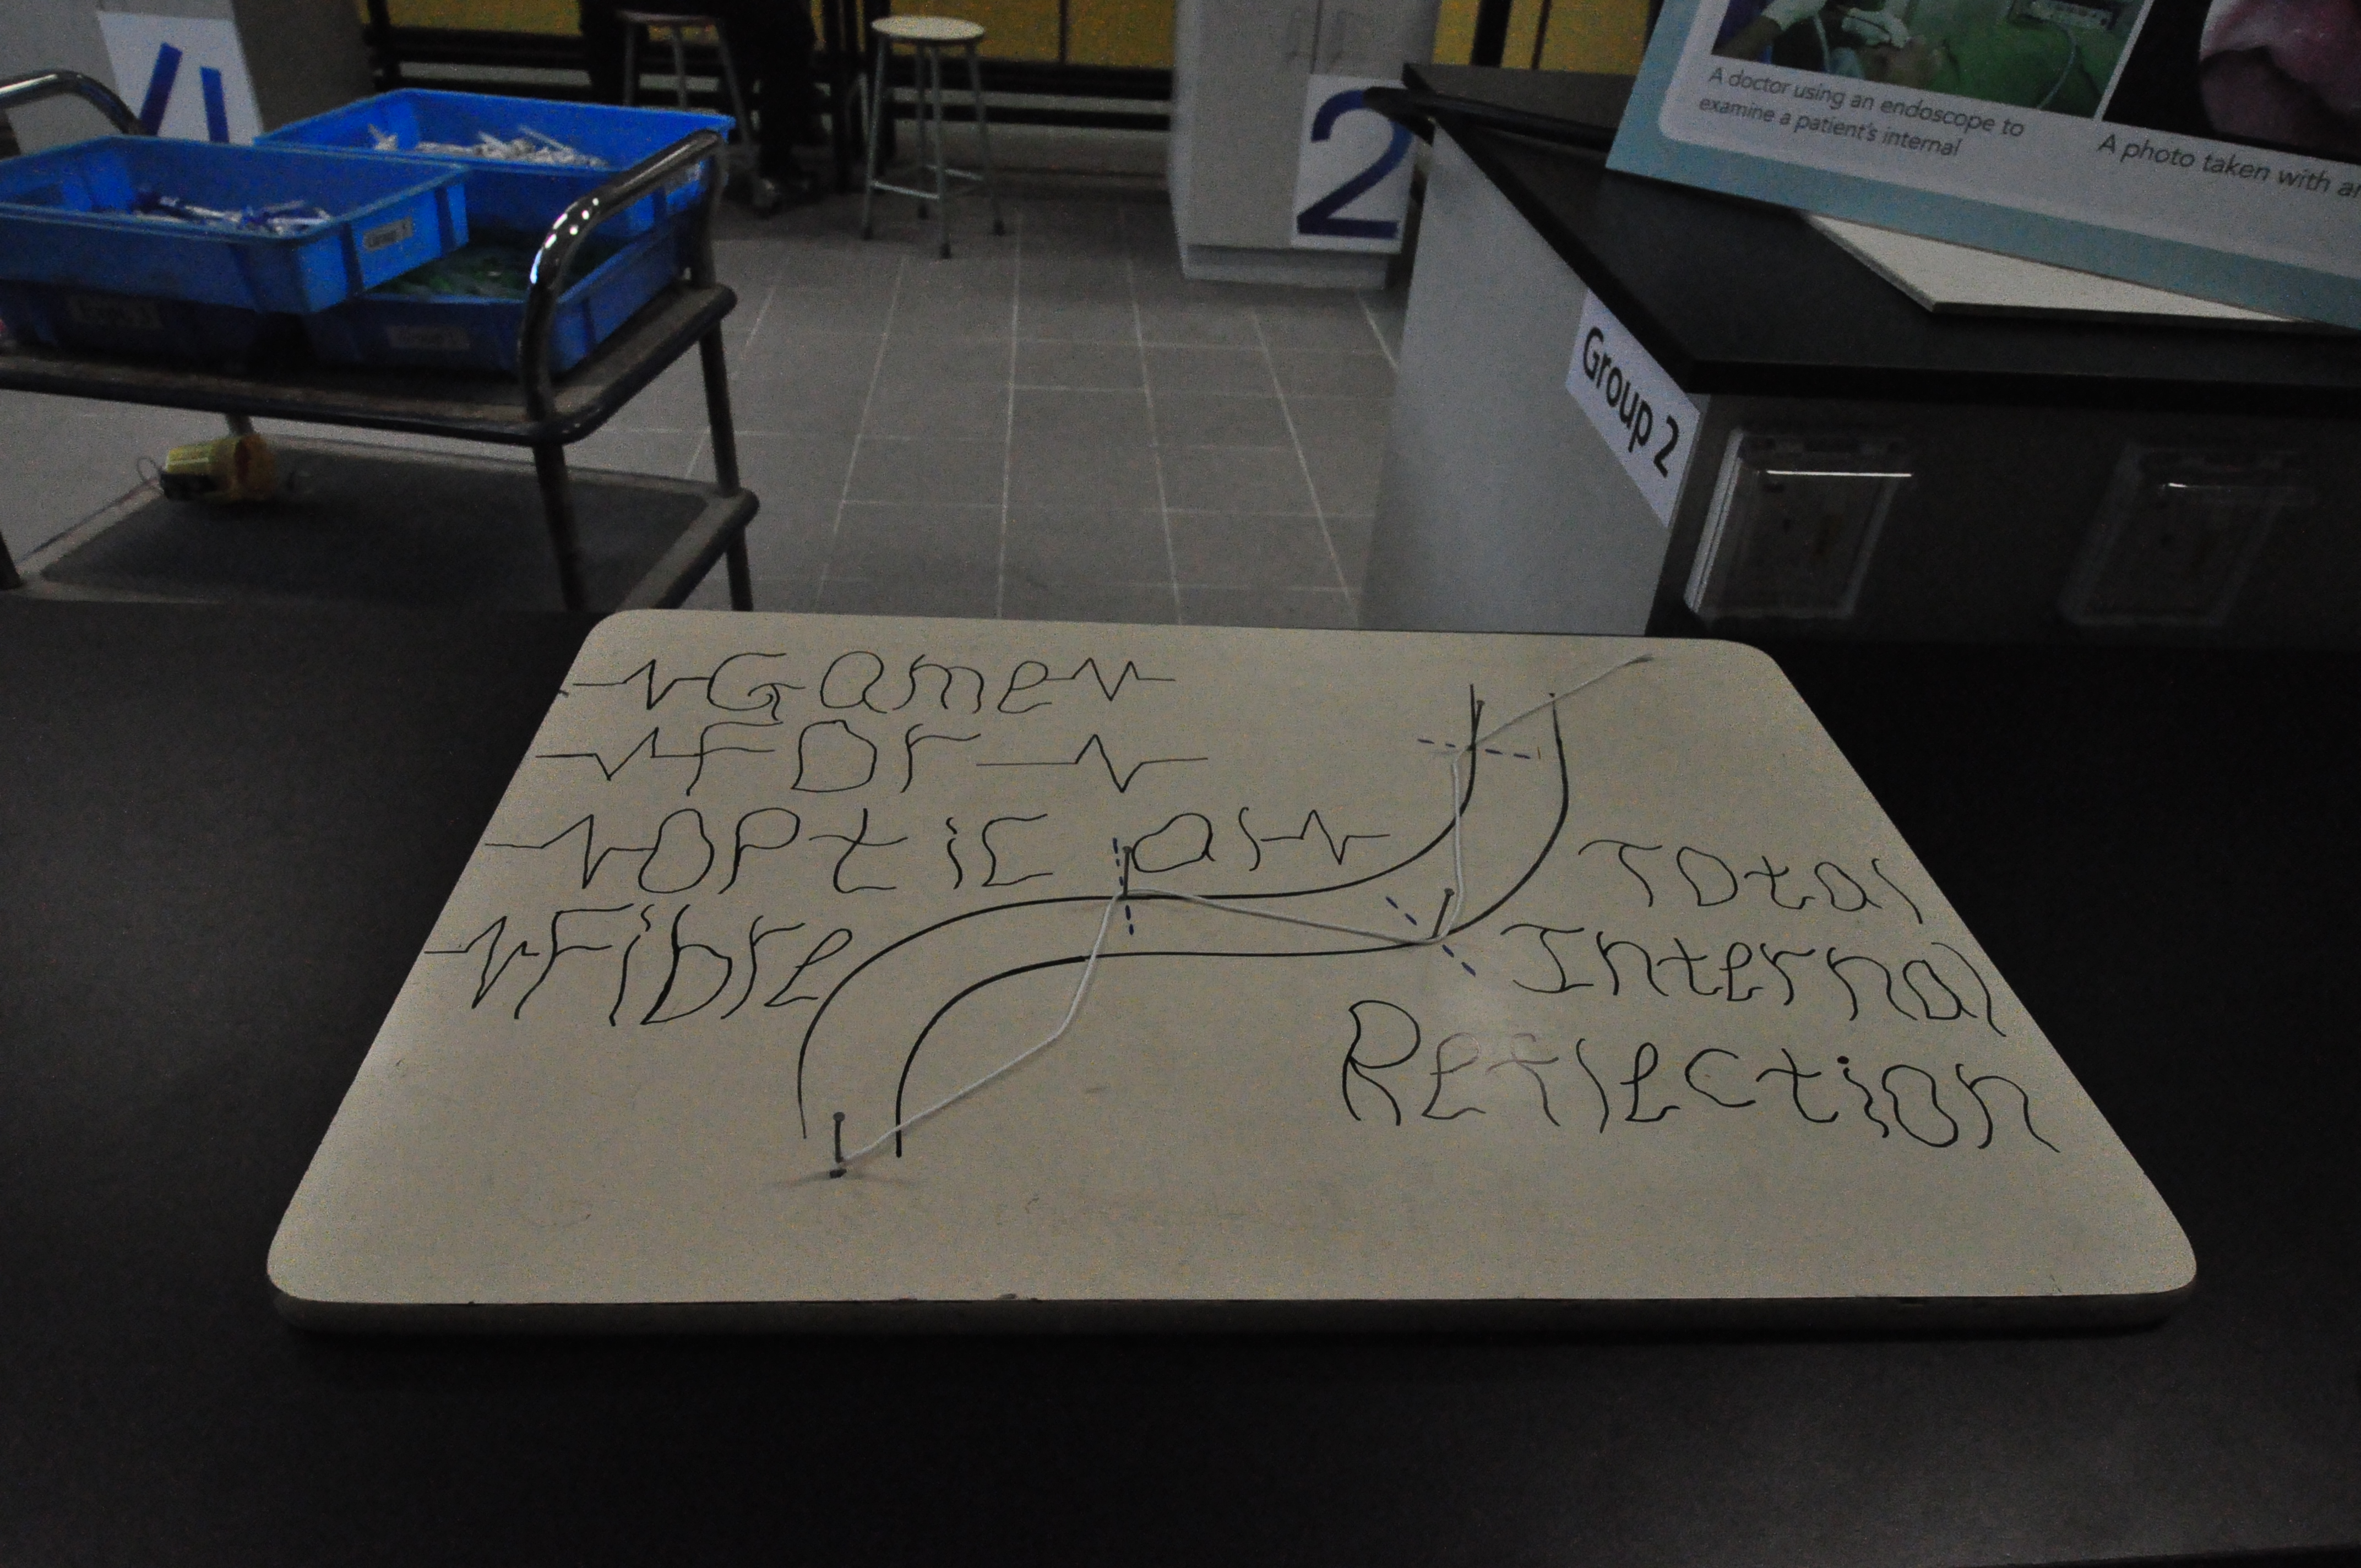 A doctor using an endoscope to
examine a patient's internal
A photo taken with
2
Group 2
Game
For
optical
Fibre
Total
Internal
Reflection